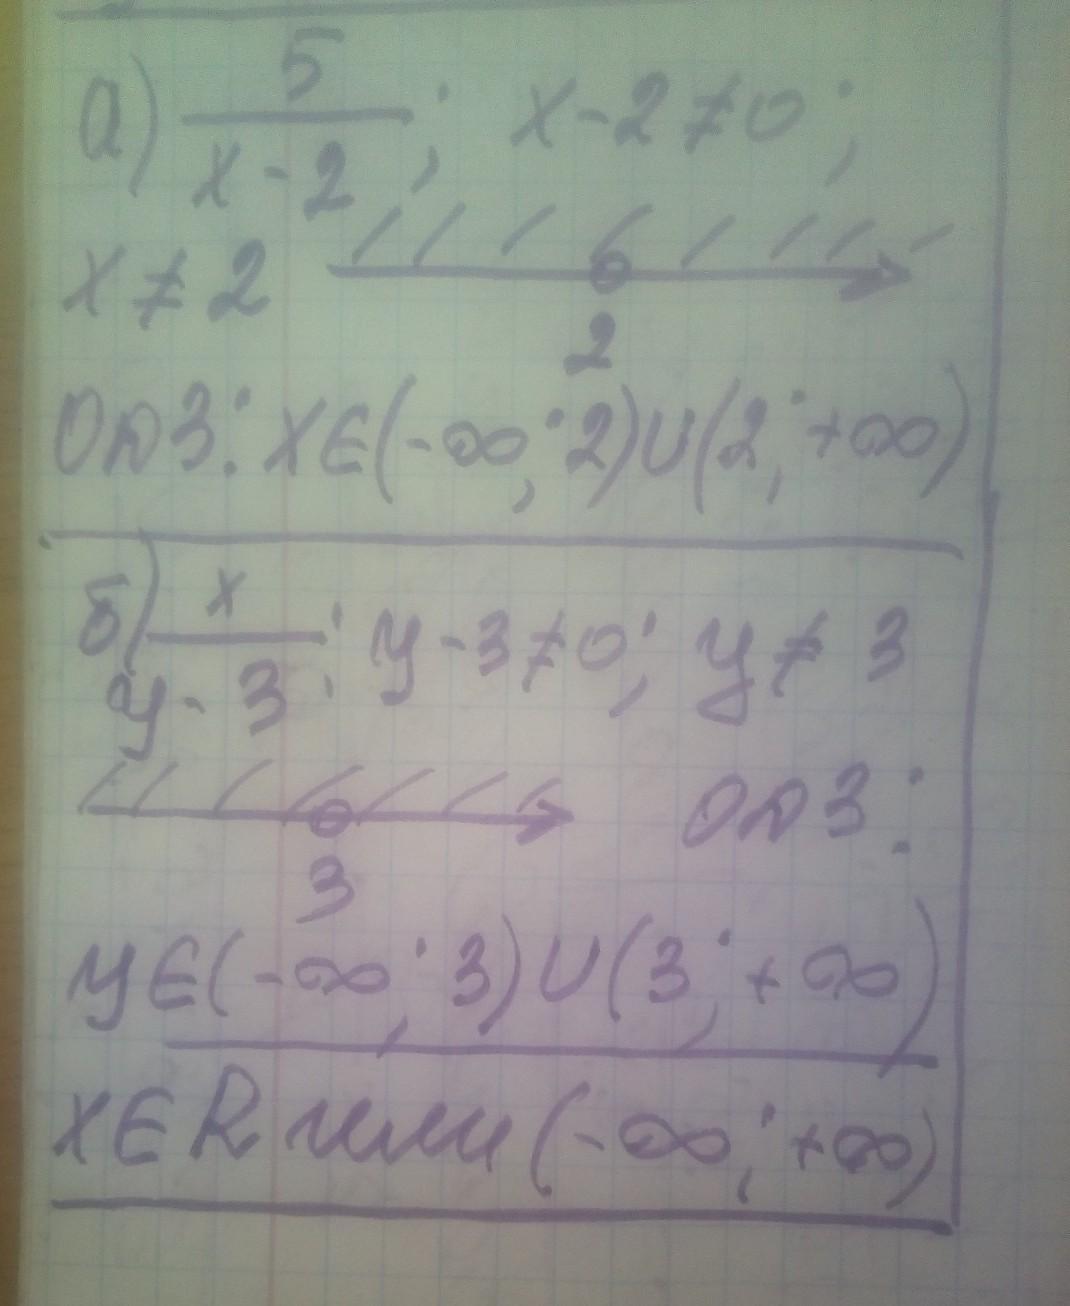 а) 5/(x-2); x-2≠0;
x≠2
2
ОДЗ: x∈(-∞;2)∪(2;+∞)
б) x/(y-3); y-3≠0; y≠3
ОДЗ:
3
y∈(-∞;3)∪(3;+∞)
x∈R или (-∞;+∞)